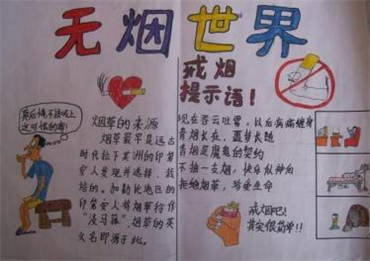 无烟世界
戒烟
提示语!
真后悔不该吸上
这可恨的烟!
烟草的来源
烟草最早是远古
时代拉丁美洲的印第
安人发现并选择、栽
培的。加勒比地区的
印第安人将烟草称作
“淡马菰”,烟草的英
文名即源于此。
现在吞云吐雾,以后病痛缠身
香烟长在,噩梦长随
香烟是魔鬼的契约
不抽一支烟,快乐似神仙
拒绝烟草,珍爱生命
戒烟吧!
其实很简单!!